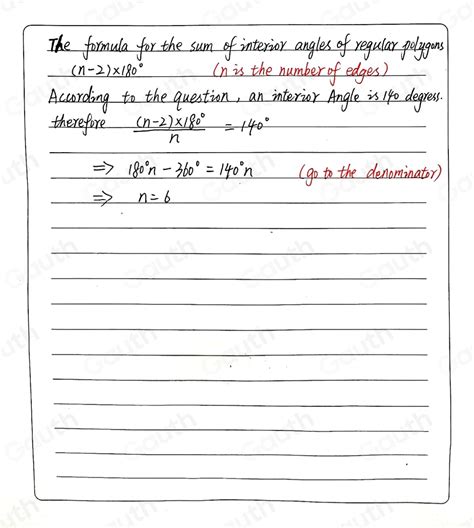 The formula for the sum of interior angles of regular polygons
(n-2)×180° (n is the number of edges)
According to the question, an interior Angle is 140 degress.
therefore (n-2)×180°/n = 140°
⇒ 180°n - 360° = 140°n (go to the denominator)
⇒ n = 6